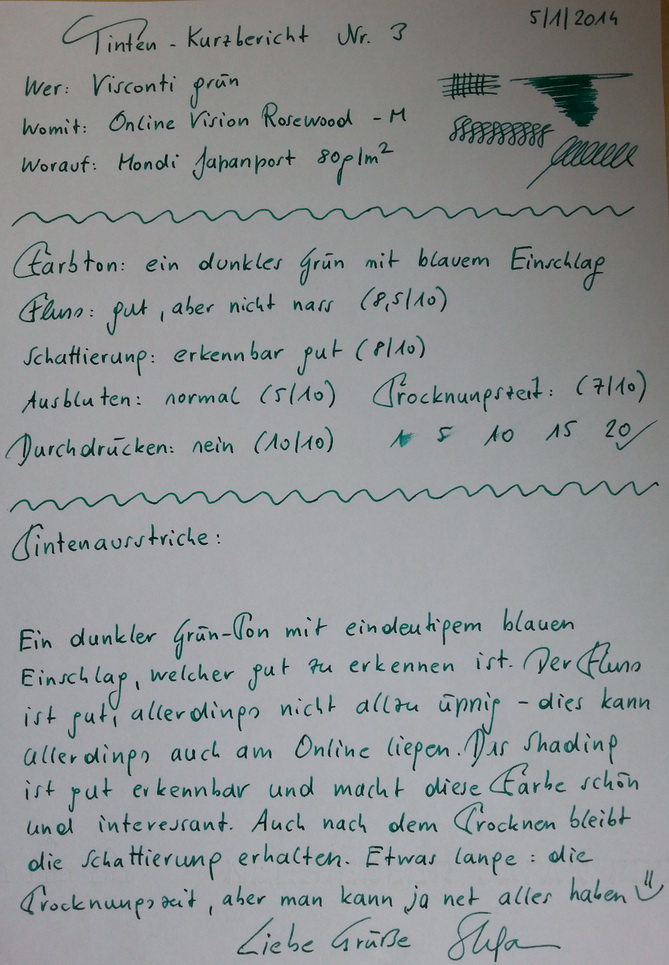 5/1/2014
Tinten - Kurzbericht Nr. 3
Wer: Visconti grün
Womit: Online Vision Rosewood - M
Worauf: Mondi Japanpost 80g/m²
Farbton: ein dunkles Grün mit blauem Einschlag
Fluss: gut, aber nicht nass (8,5/10)
Schattierung: erkennbar gut (8/10)
Ausbluten: normal (5/10) Trocknungszeit: (7/10)
Durchdrücken: nein (10/10) 1 5 10 15 20✓
Tintenausstriche:
Ein dunkler Grün-Ton mit eindeutigem blauen
Einschlag, welcher gut zu erkennen ist. Der Fluss
ist gut, allerdings nicht allzu üppig - dies kann
allerdings auch am Online liegen. Das Shading
ist gut erkennbar und macht diese Farbe schön
und interessant. Auch nach dem Trocknen bleibt
die Schattierung erhalten. Etwas lange: die
Trocknungszeit, aber man kann ja net alles haben
Liebe Grüße